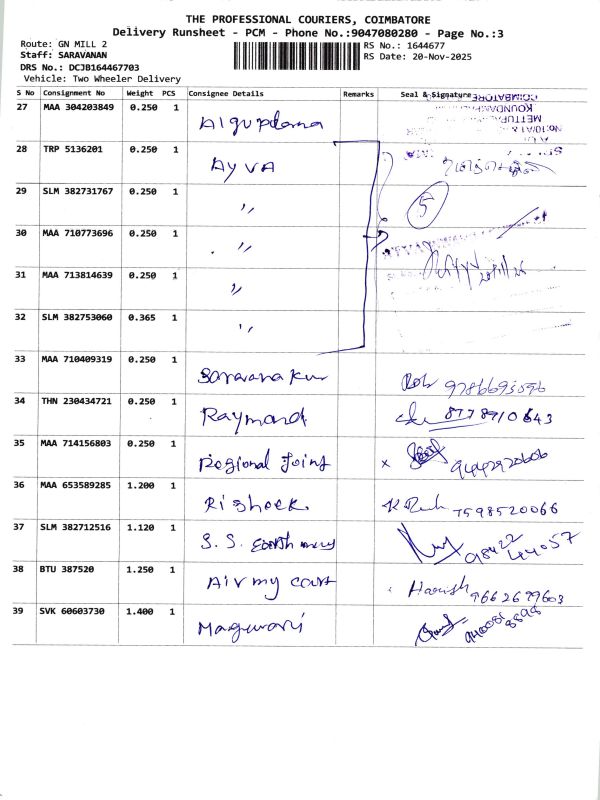 THE PROFESSIONAL COURIERS, COIMBATORE
Delivery Runsheet - PCM - Phone No.:9047080280 - Page No.:3
Route: GN MILL 2
RS No.: 1644677
Staff: SARAVANAN
RS Date: 20-Nov-2025
DRS No.: DCJB164467703
Vehicle: Two Wheeler Delivery
S No Consignment No Weight PCS Consignee Details Remarks Seal & Signature
27 MAA 304203849 0.250 1
28 TRP 5136201 0.250 1 AYVA
29 SLM 382731767 0.250 1 〃 5
30 MAA 710773696 0.250 1 〃
31 MAA 713814639 0.250 1 〃
32 SLM 382753060 0.365 1 〃
33 MAA 710409319 0.250 1
34 THN 230434721 0.250 1 Raymond 8778910643
35 MAA 714156803 0.250 1 Regional Joint
36 MAA 653589285 1.200 1 Rishock 7598520066
37 SLM 382712516 1.120 1 S. S.
38 BTU 387520 1.250 1 Air my Harish 9662679603
39 SVK 60603730 1.400 1